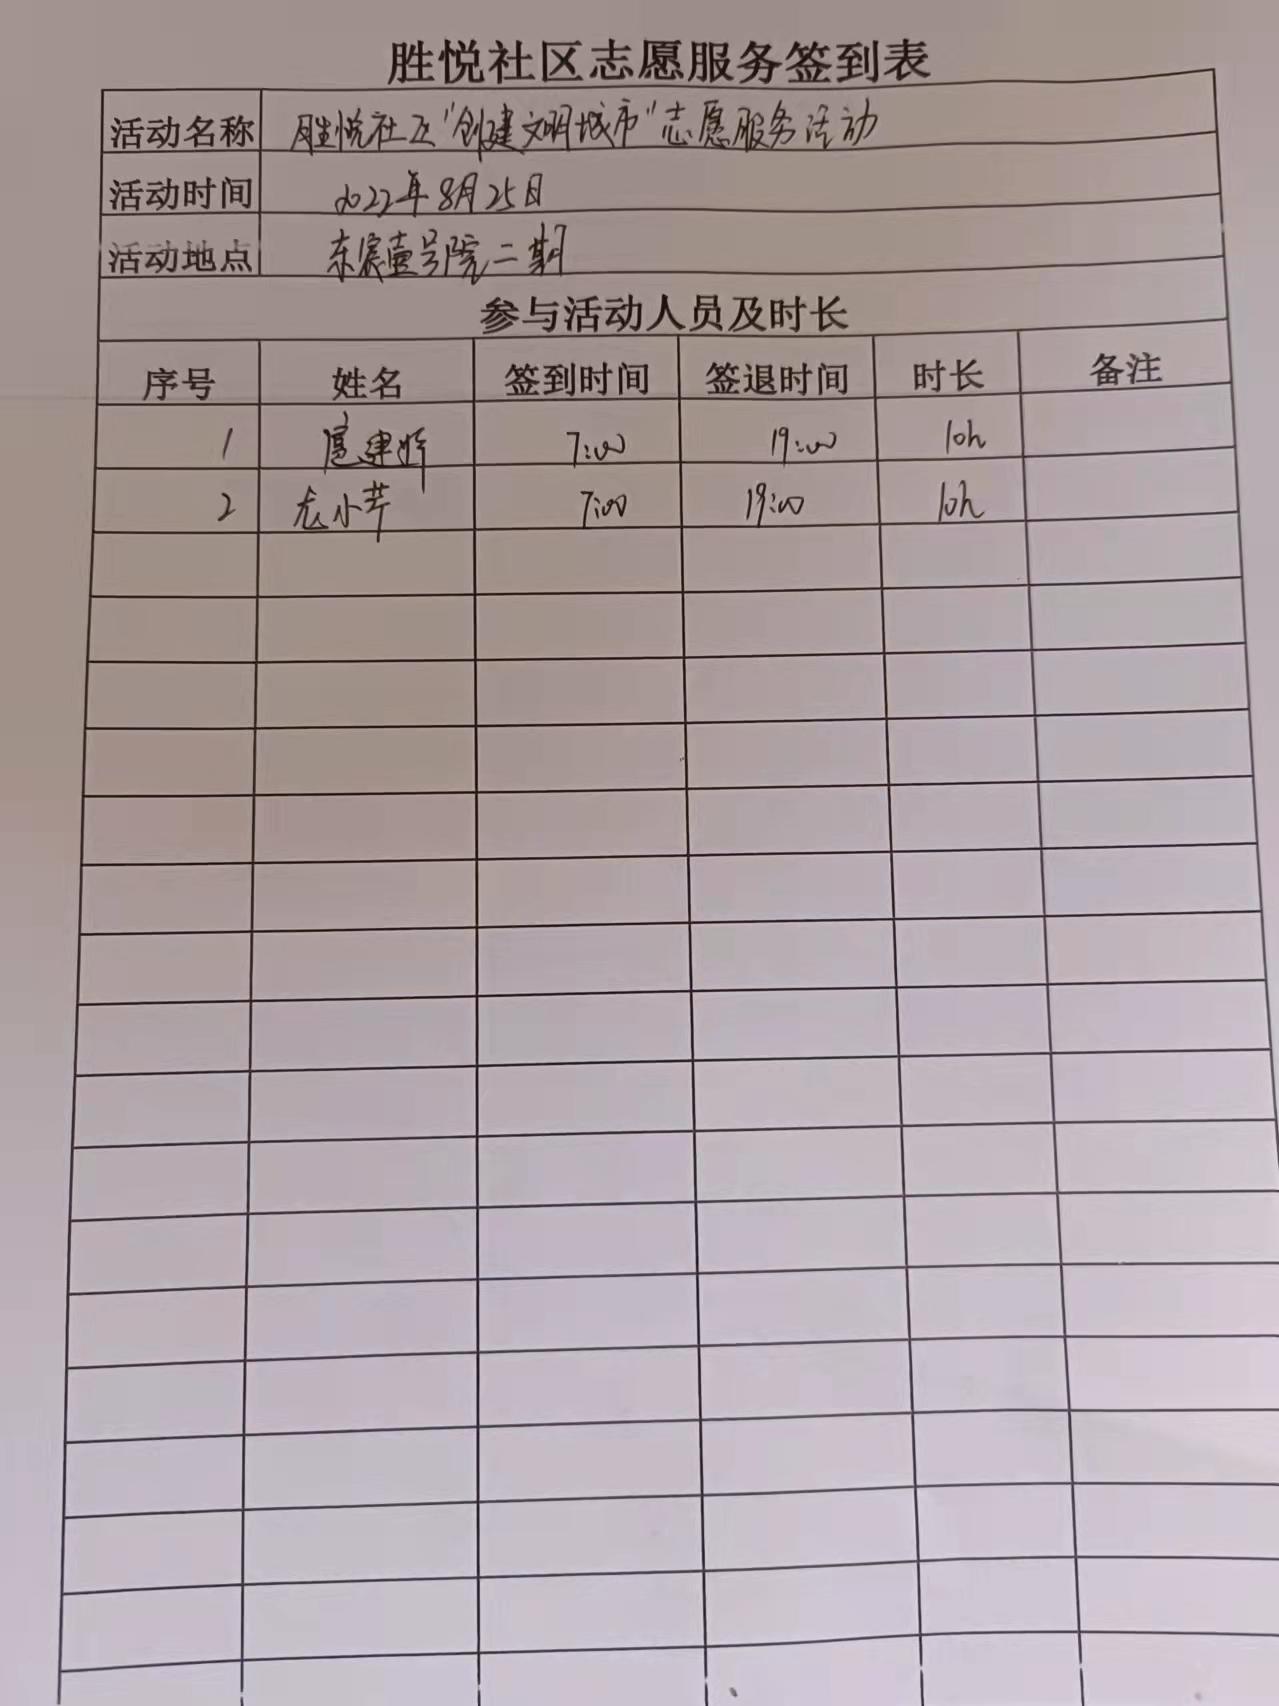 胜悦社区志愿服务签到表
活动名称 胜悦社区“创建文明城市”志愿服务活动
活动时间 2022年8月25日
活动地点 东宸壹号院二期
参与活动人员及时长
序号 姓名 签到时间 签退时间 时长 备注
1 扈建 7:00 19:00 10h
2 尨小芹 7:00 19:00 10h